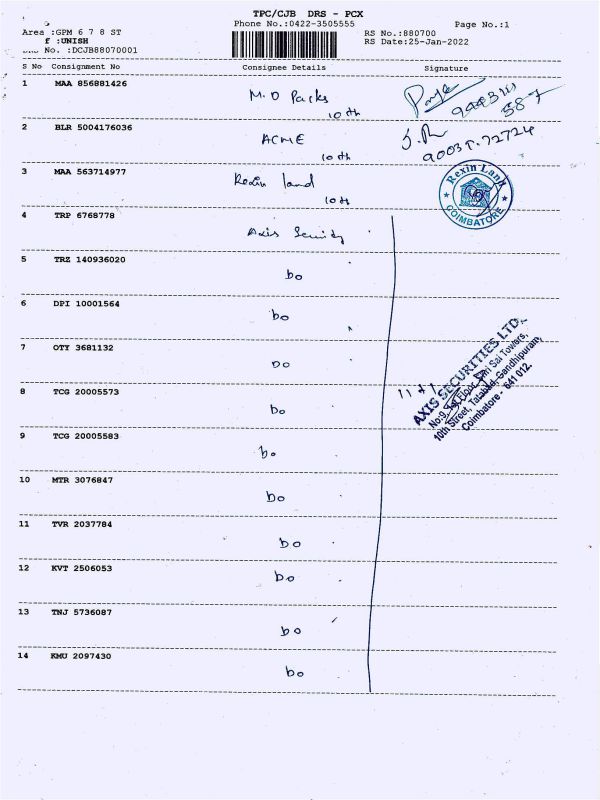 TPC/CJB DRS - PCX
Phone No.:0422-3505555 Page No.:1
Area :GPM 6 7 8 ST RS No.:880700
f :UNISH RS Date:25-Jan-2022
No. :DCJB88070001
S No Consignment No Consignee Details Signature
1 MAA 856881426 M.D Packs
10th
2 BLR 5004176036 ACME
10th
3 MAA 563714977 Rexin land
10th
Rexin Land
COIMBATORE
4 TRP 6768778 Axis
5 TRZ 140936020 Do
6 DPI 10001564 Do
7 OTY 3681132 Do
8 TCG 20005573 Do
9 TCG 20005583 Do
AXIS SECURITIES LTD.
No:9, Floor, Sri Sai Towers,
10th Street, Tatabad, Gandhipuram,
Coimbatore - 641 012.
10 MTR 3076847 Do
11 TVR 2037784 Do
12 KVT 2506053 Do
13 TNJ 5736087 Do
14 KMU 2097430 Do